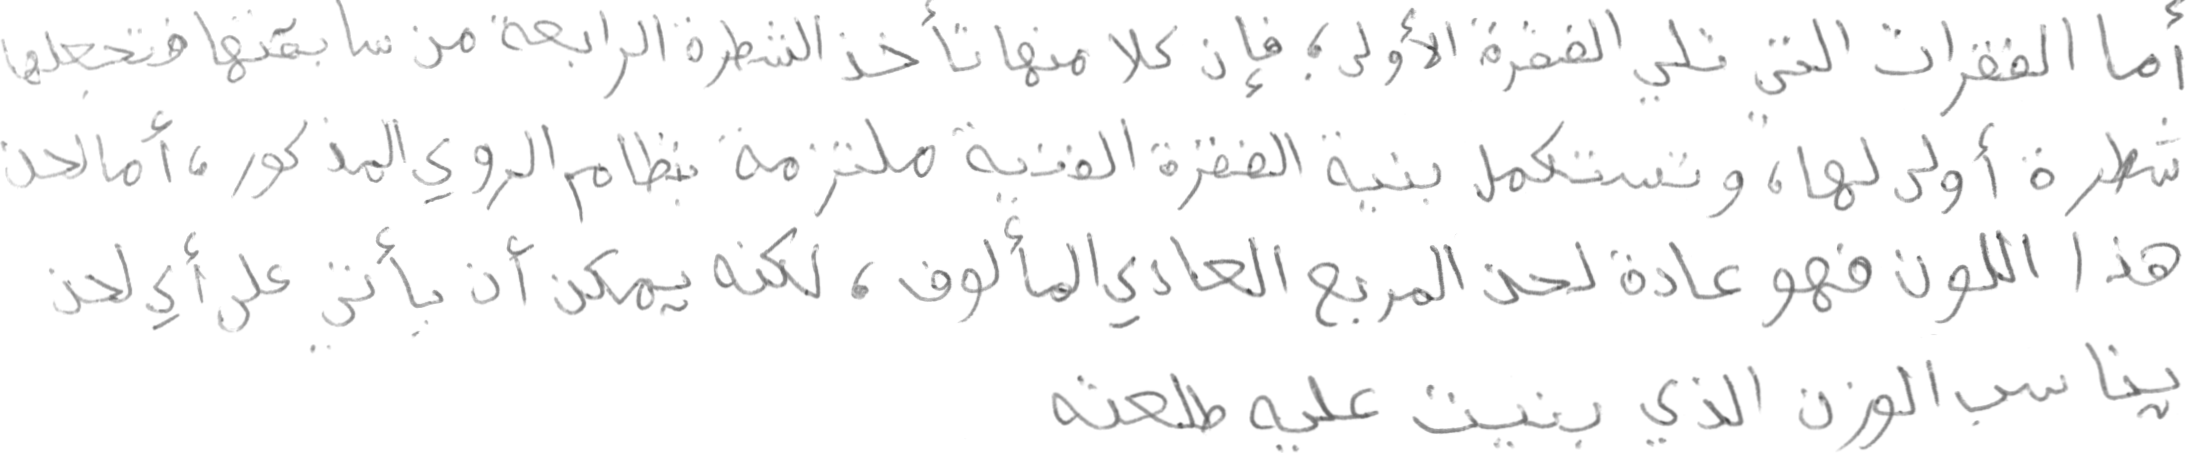 أما الفقرات التي تلي الفقرة الأولى، فإن كلا منها تأخذ الشطرة الرابعة من سابقتها فتجعلها
شطرة أولى لها، وتستكمل بنية الفقرة الفنية ملتزمة بنظام الروي المذكور، أما لحن
هذا اللون فهو عادة لحن المربع العادي المألوف، لكنه يمكن أن يأتي على أي لحن
يناسب الوزن الذي بنيت عليه طلعته